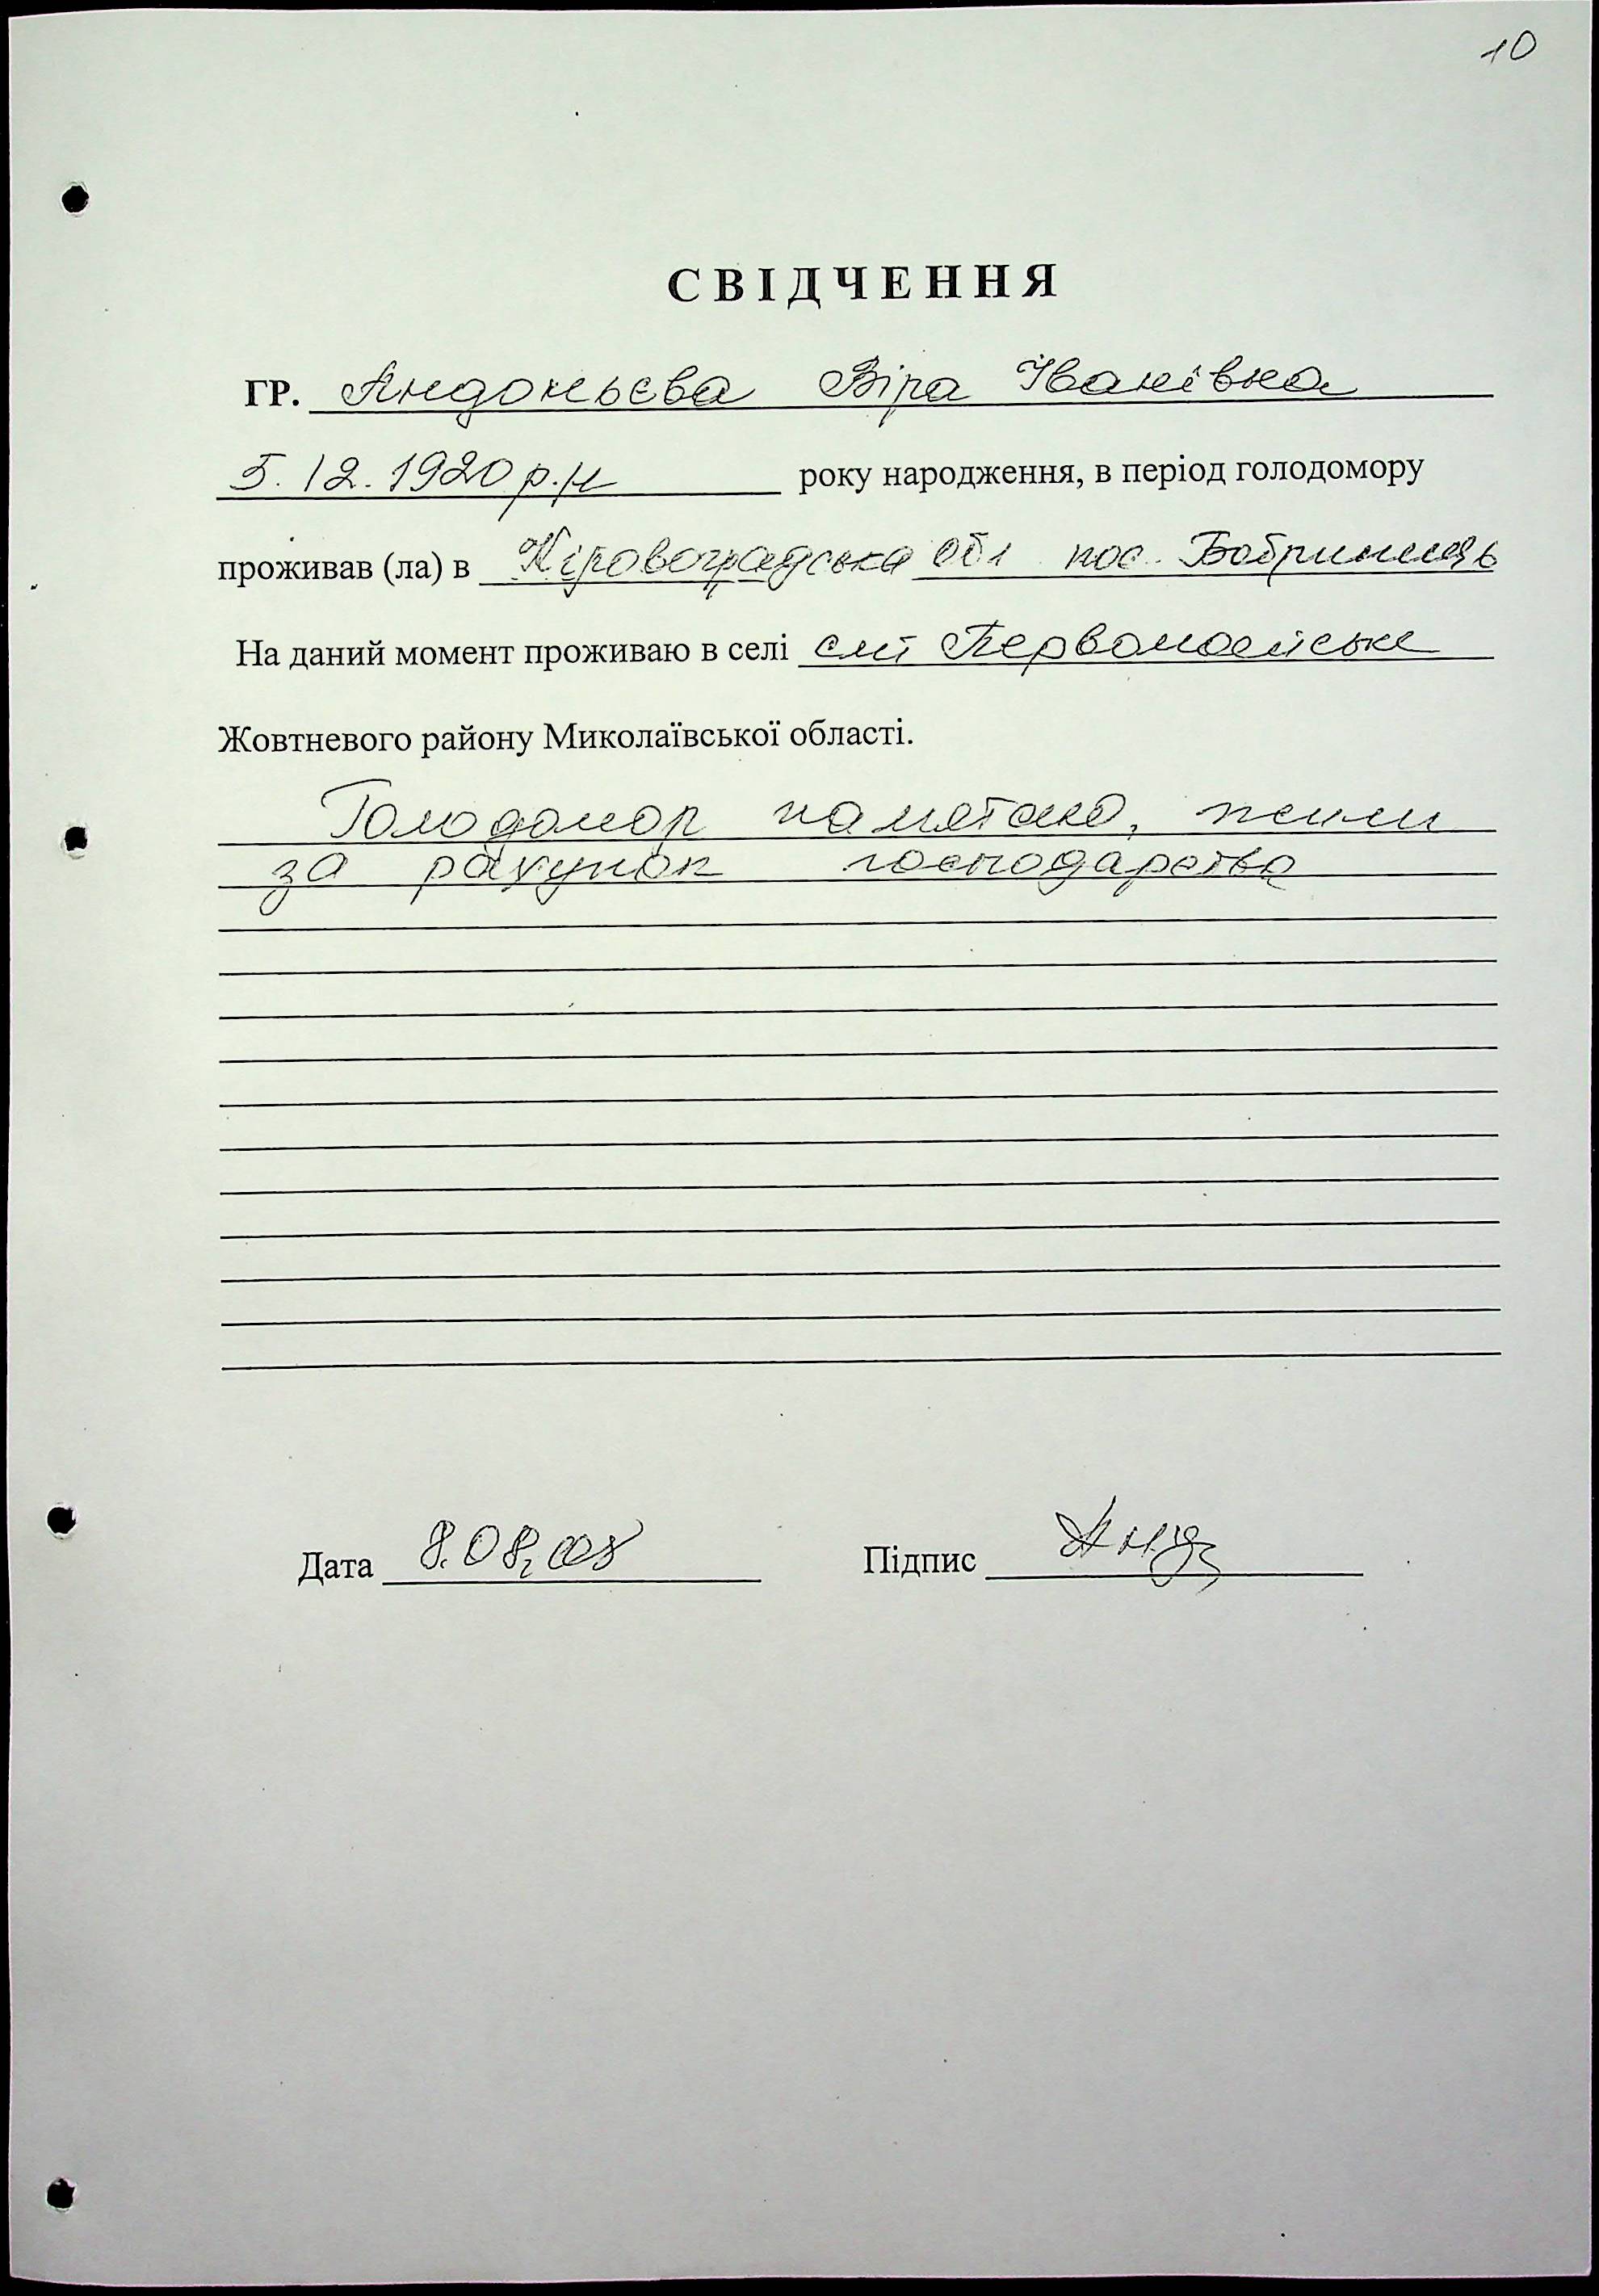 10
СВІДЧЕННЯ
ГР. Андоньєва Віра Іванівна
5.12.1920 р.н року народження, в період голодомору
проживав (ла) в Кіровоградська обл пос. Бобринець
На даний момент проживаю в селі смт Первомайське
Жовтневого району Миколаївської області.
Голодомор памятаю, жили
за рахунок господарства
Дата 8.08.08 Підпис Анд